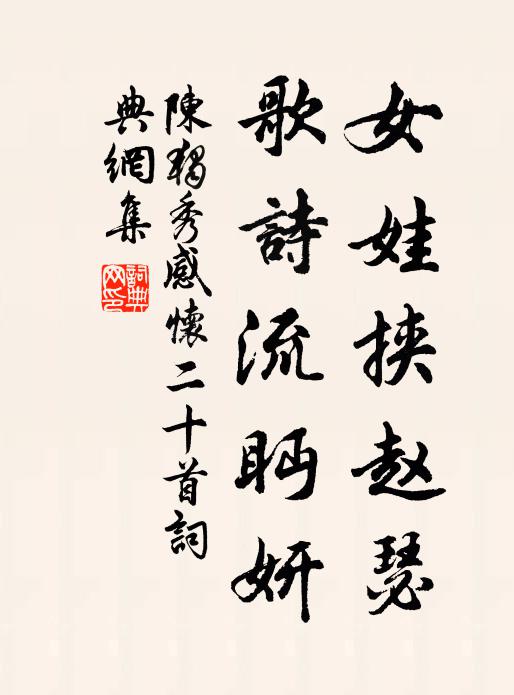 女娃挟赵瑟
歌詩流眄妍
陳獨秀感懷二十首詞
典網集
詞典網印